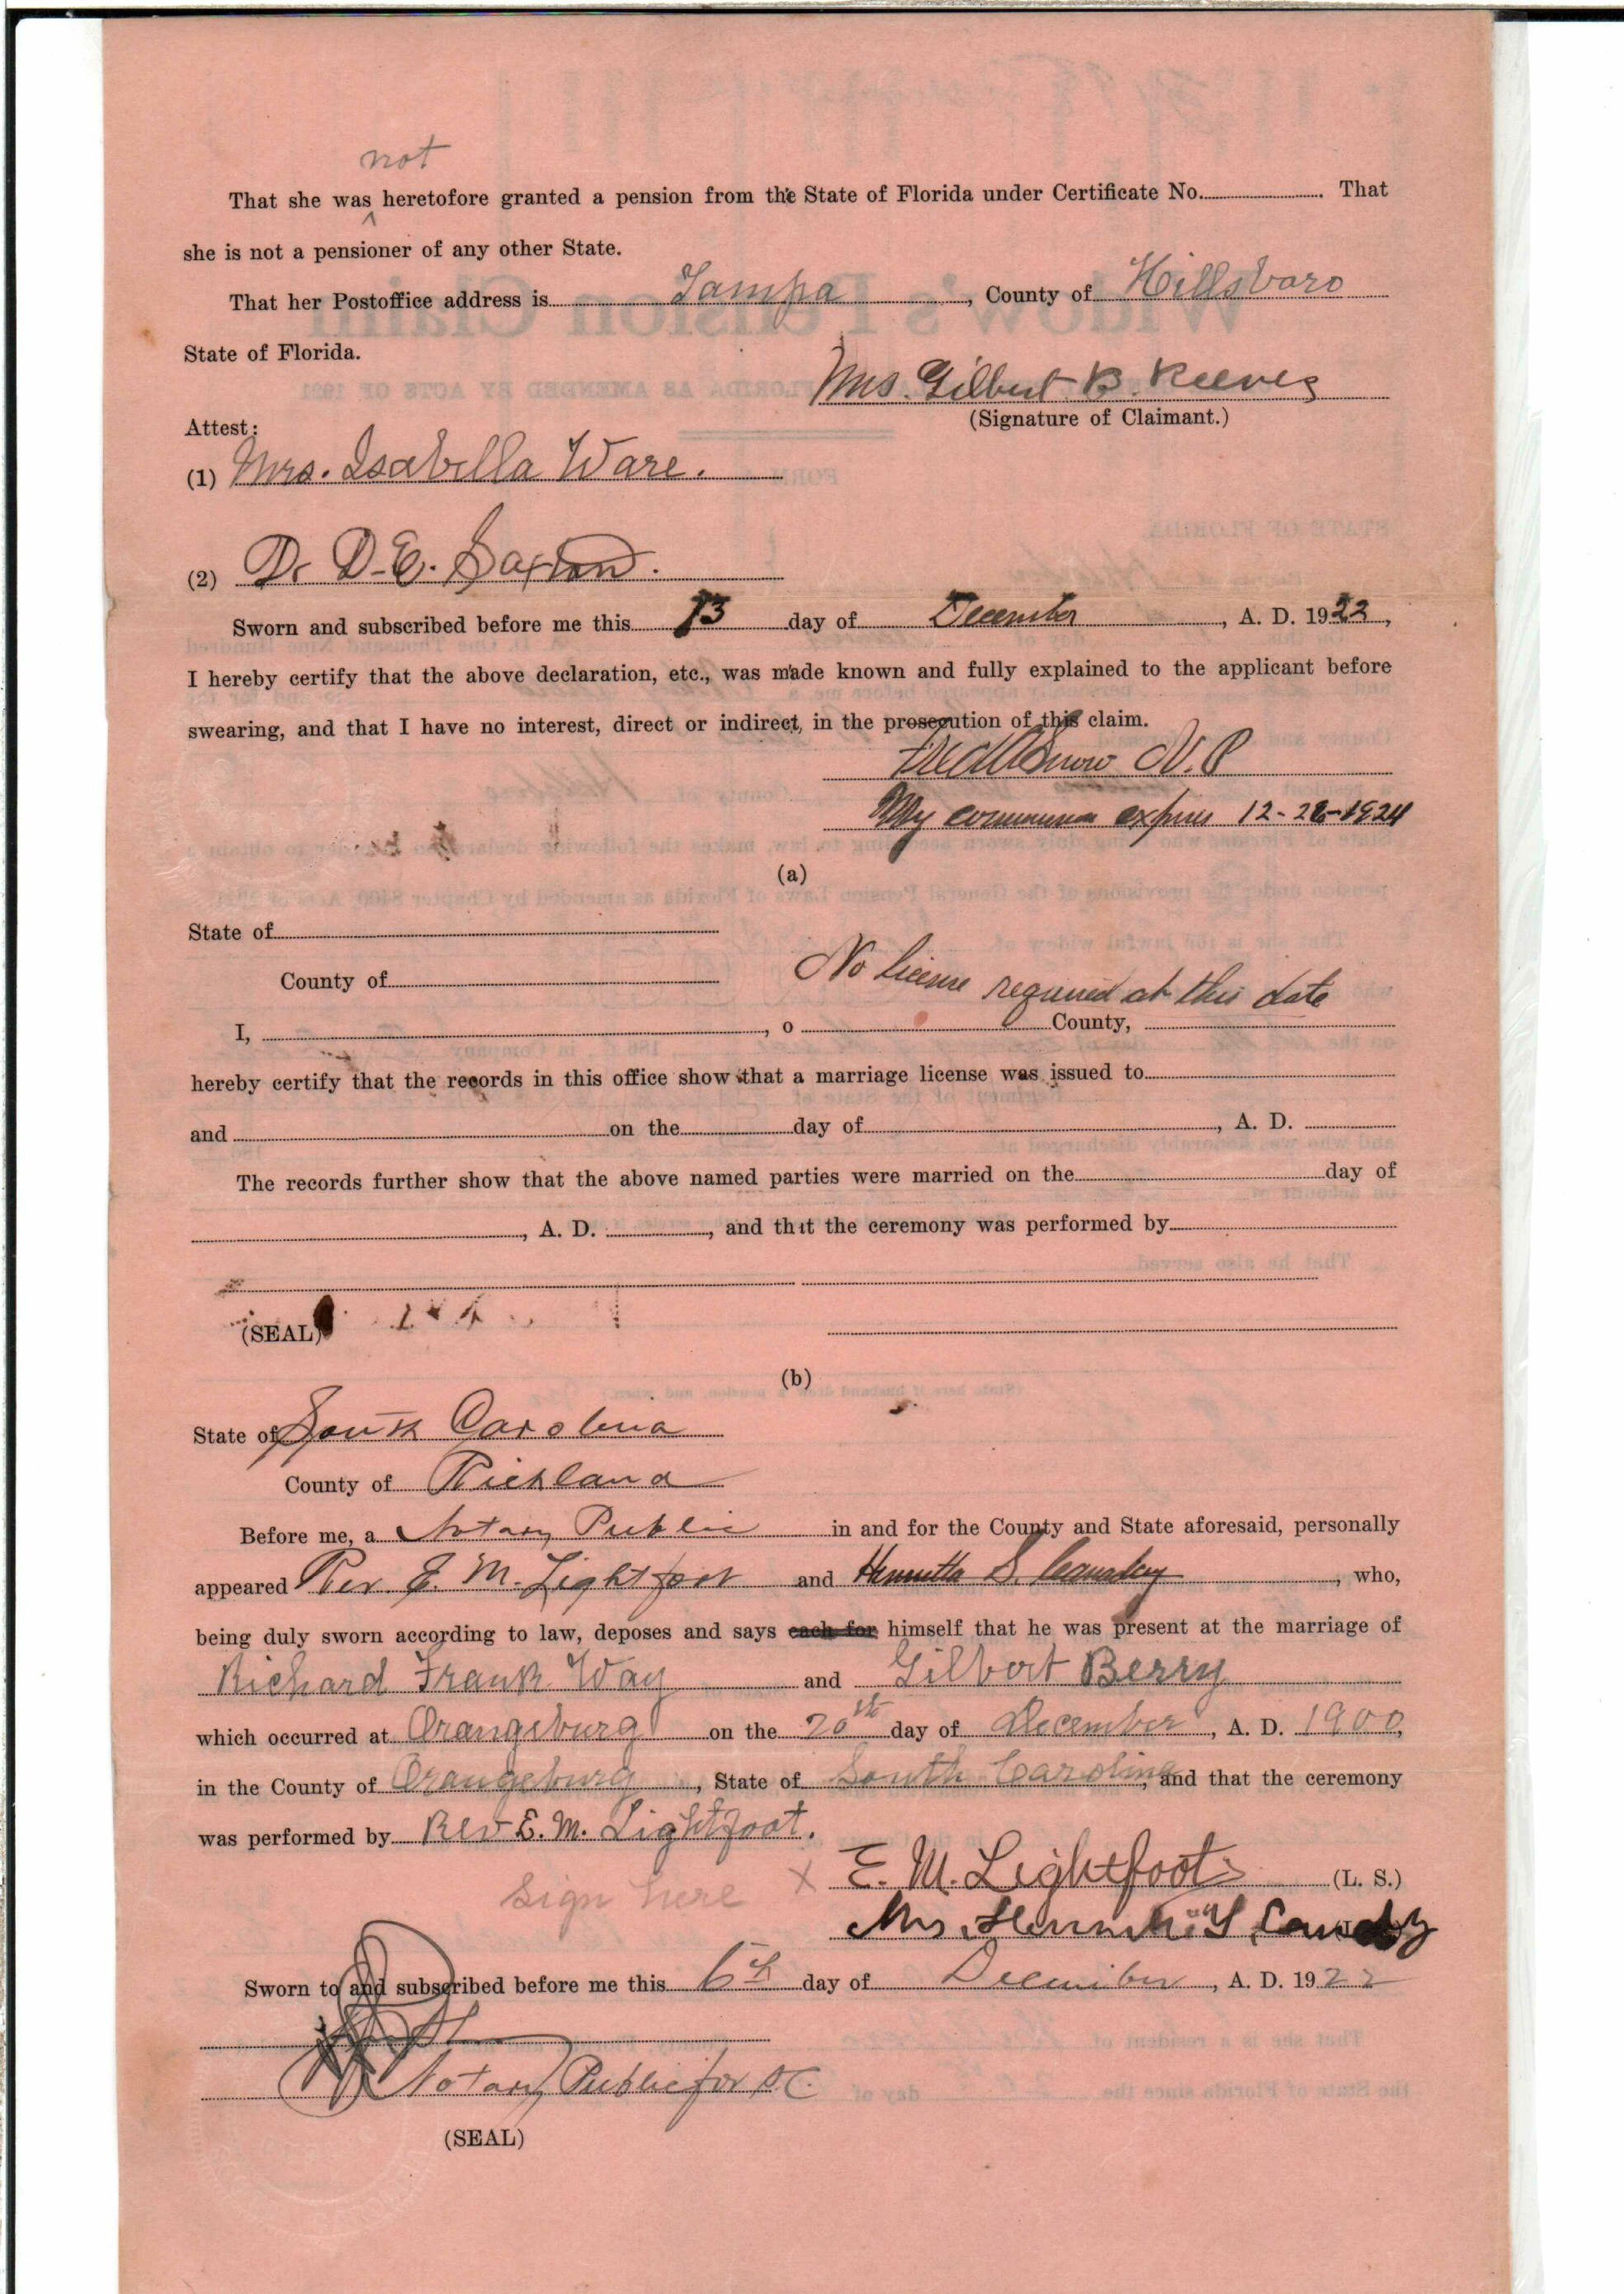 not
That she was ^ heretofore granted a pension from the State of Florida under Certificate No. That
she is not a pensioner of any other State.
That her Postoffice address is Tampa, County of Hillsboro
State of Florida.
Mrs. Gilbert B. Reeves
(Signature of Claimant.)
Attest:
(1) Mrs. Isabella Ware.
(2) Dr D. E. Saxton.
Sworn and subscribed before me this 13 day of December, A. D. 1922,
I hereby certify that the above declaration, etc., was made known and fully explained to the applicant before
swearing, and that I have no interest, direct or indirect, in the prosecution of this claim.
N. P
My commission expires 12-28-1924
(a)
State of
County of
No license required at this date
I, , o County,
hereby certify that the records in this office show that a marriage license was issued to
and on the day of , A. D.
The records further show that the above named parties were married on the day of
, A. D. , and that the ceremony was performed by
(SEAL)
(b)
State of South Carolina
County of Richland
Before me, a Notary Public in and for the County and State aforesaid, personally
appeared Rev E. M. Lightfoot and Henrietta S. , who,
being duly sworn according to law, deposes and says each for himself that he was present at the marriage of
Richard Frank Way and Gilbert Berry
which occurred at Orangeburg on the 20th day of December, A. D. 1900,
in the County of Orangeburg, State of South Carolina, and that the ceremony
was performed by Rev E. M. Lightfoot.
Sign here X E. M. Lightfoot (L. S.)
Mrs.
Sworn to and subscribed before me this 6th day of December, A. D. 1922
Notary Public for S.C.
(SEAL)